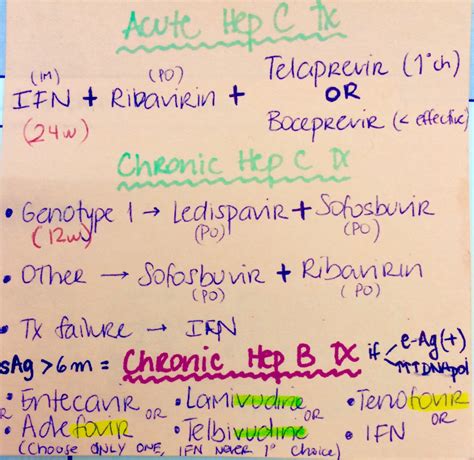 Acute Hep C Tx
(IM) (PO)
IFN + Ribavirin + Telaprevir (1° ch)
OR
(24w) Boceprevir (< effective)
Chronic Hep C Tx
• Genotype 1 → Ledispavir + Sofosbuvir
(12w) (PO) (PO)
• Other → Sofosbuvir + Ribavirin
(PO) (PO)
• Tx failure → IFN
sAg > 6m = Chronic Hep B Tx if < e-Ag (+)
↑↑↑ DNApol
• Entecavir OR • Lamivudine OR • Tenofovir
OR
• Adefovir OR • Telbivudine OR • IFN
(Choose ONLY ONE, IFN NEVER 1° choice)